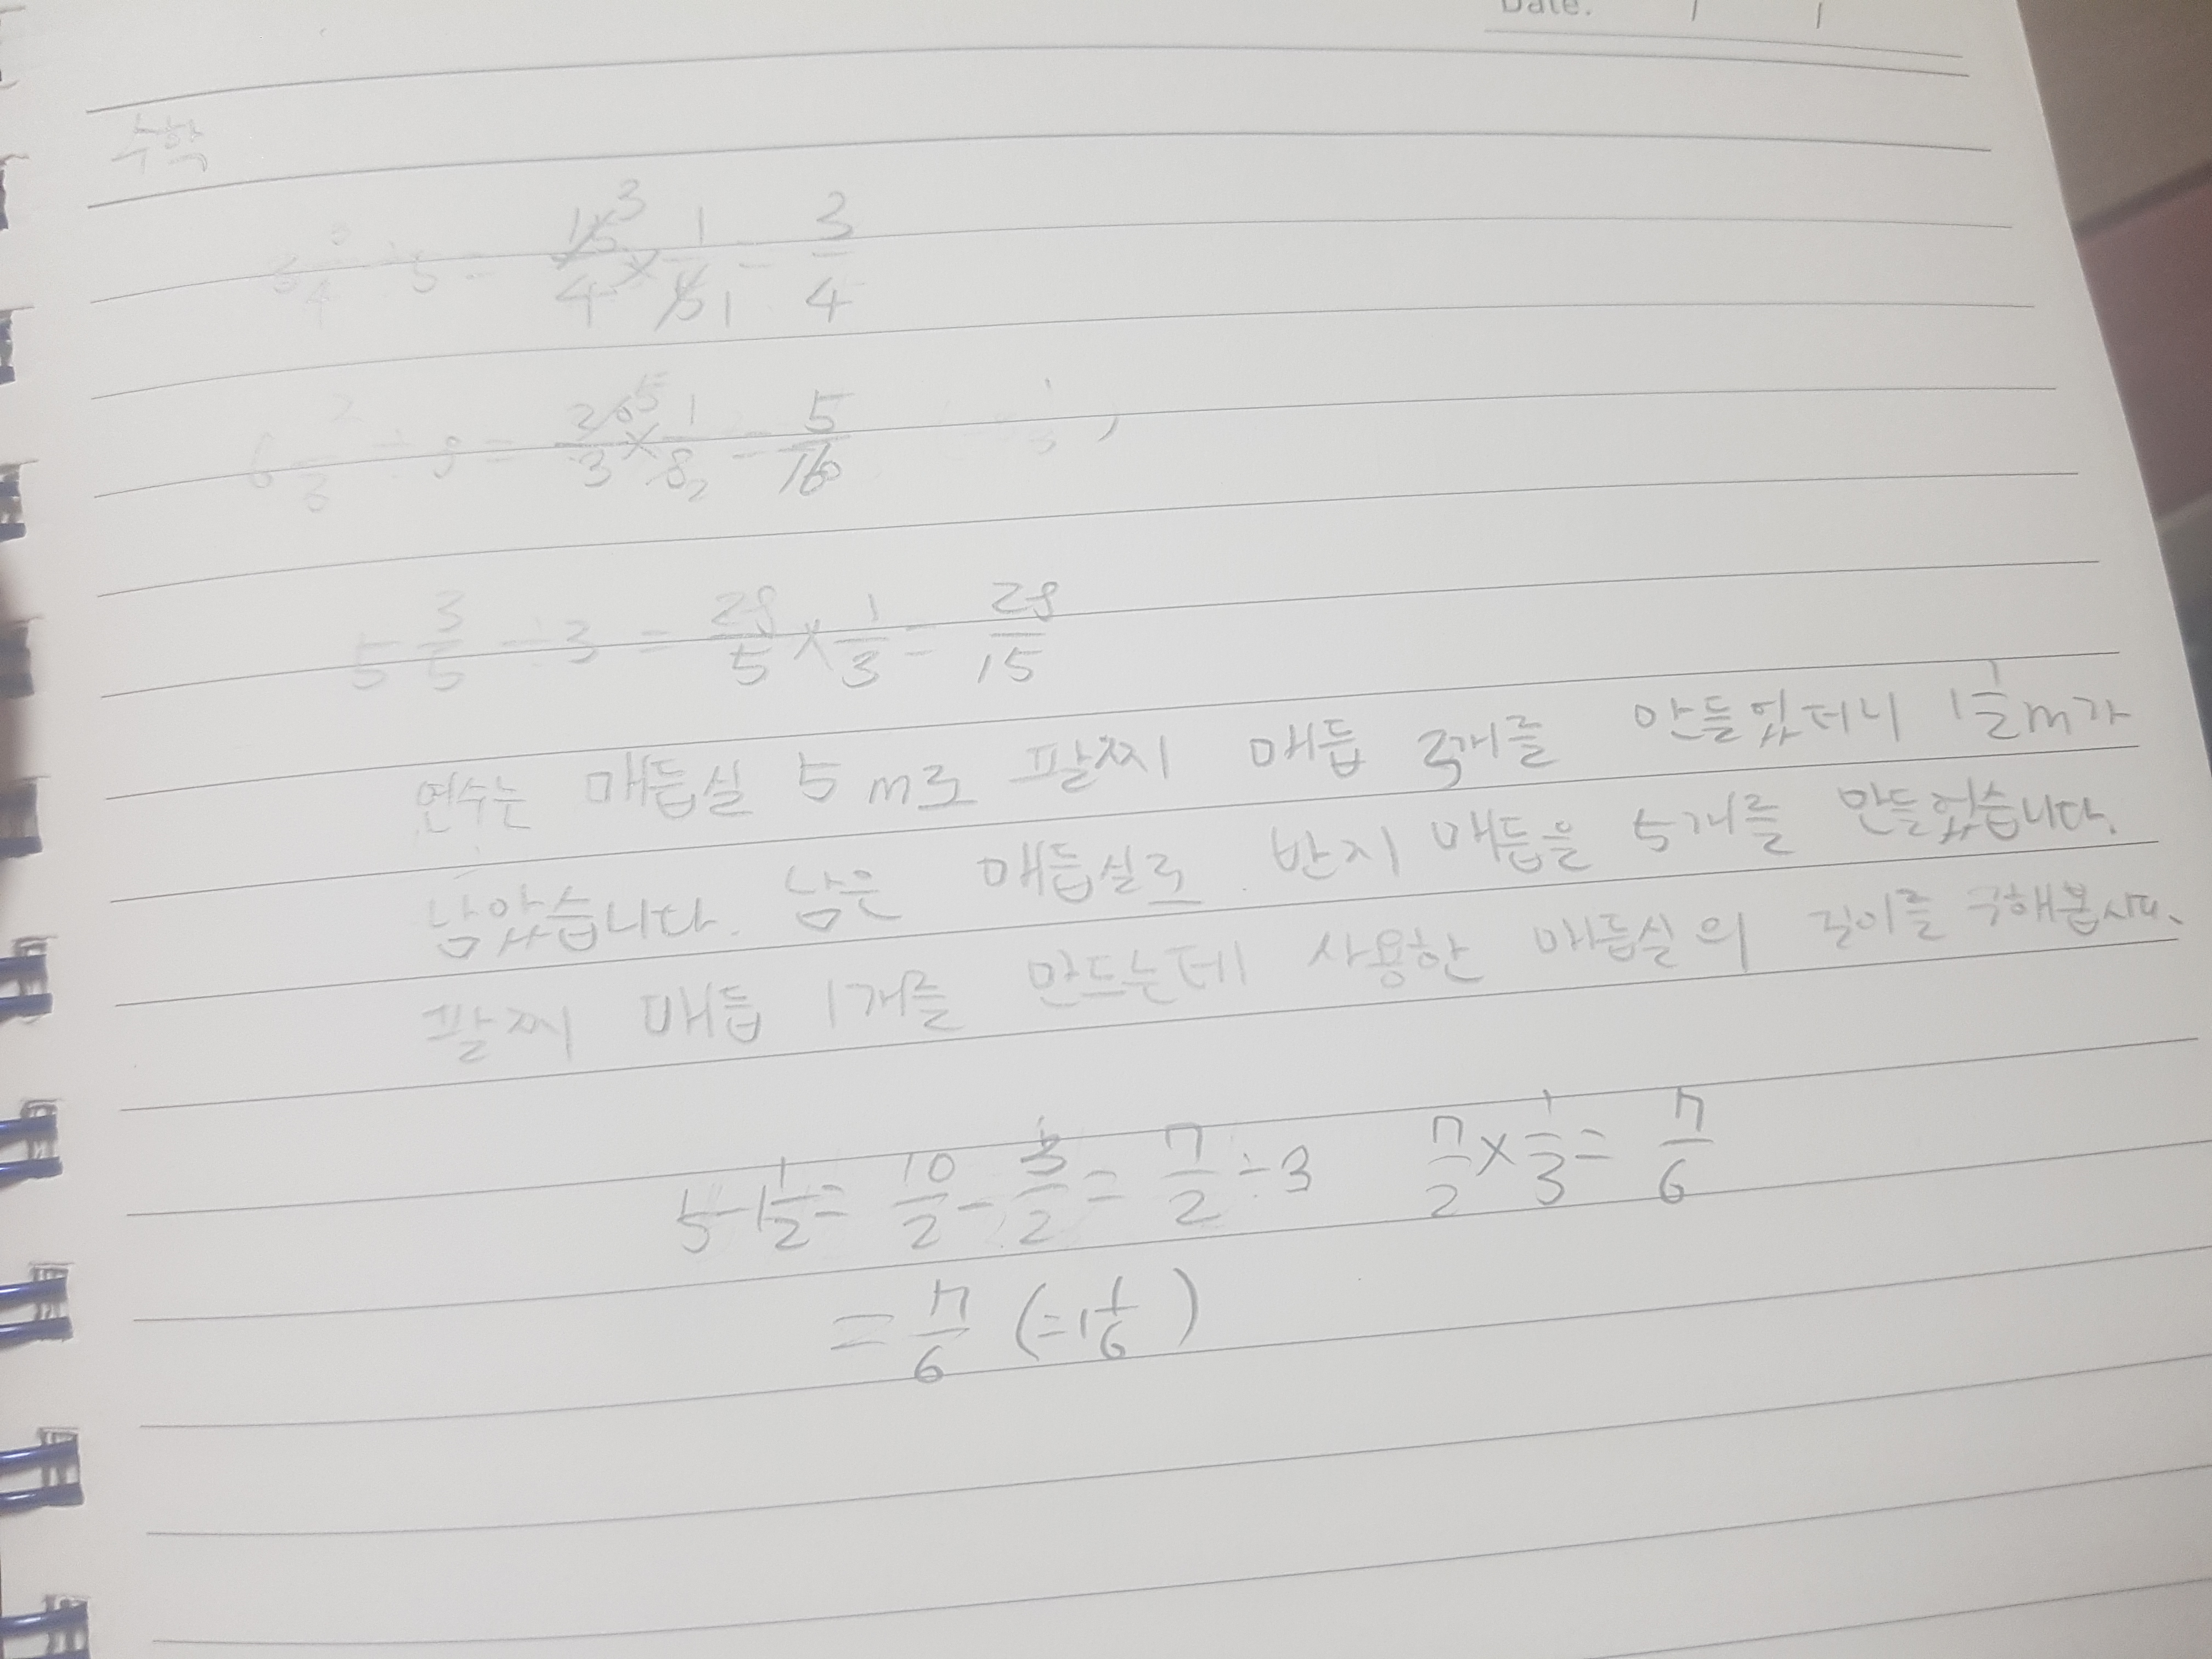 Date. / /
수학
÷ 5 = 15/4 3 × 1/5 1 = 3/4
6 2/3 ÷ 8 = 20/3 5 × 1/8 2 = 5/
5 3/5 ÷ 3 = 28/5 × 1/3 = 28/15
연수는 매듭실 5m로 팔찌 매듭 3개를 만들었더니 1 1/2m가
남았습니다. 남은 매듭실로 반지 매듭을 5개를 만들었습니다.
팔찌 매듭 1개를 만드는데 사용한 매듭실의 길이를 구해봅시다.
5-1 1/2 = 10/2 - 3/2 = 7/2 ÷ 3 7/2 × 1/3 = 7/6
= 7/6 (=1 1/6)